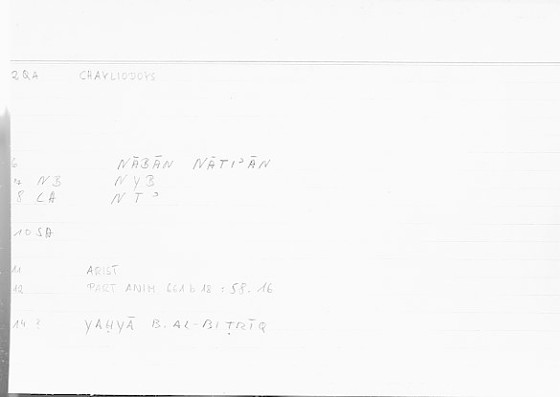 2 QA CHAYLIODOYS
6 NĀBĀN NĀTIʾĀN
7 NB NYB
8 LA NTʾ
10 SA
11 ARIST
12 PART ANIM 661 b 18 : 58.16
14 ? YAḤYĀ B. AL-BIṬRĪQ